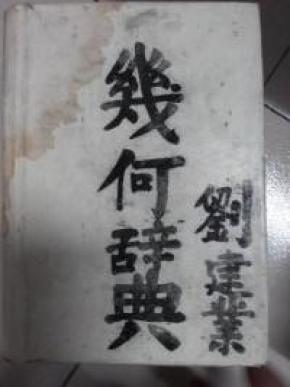 幾何辞典
劉建業